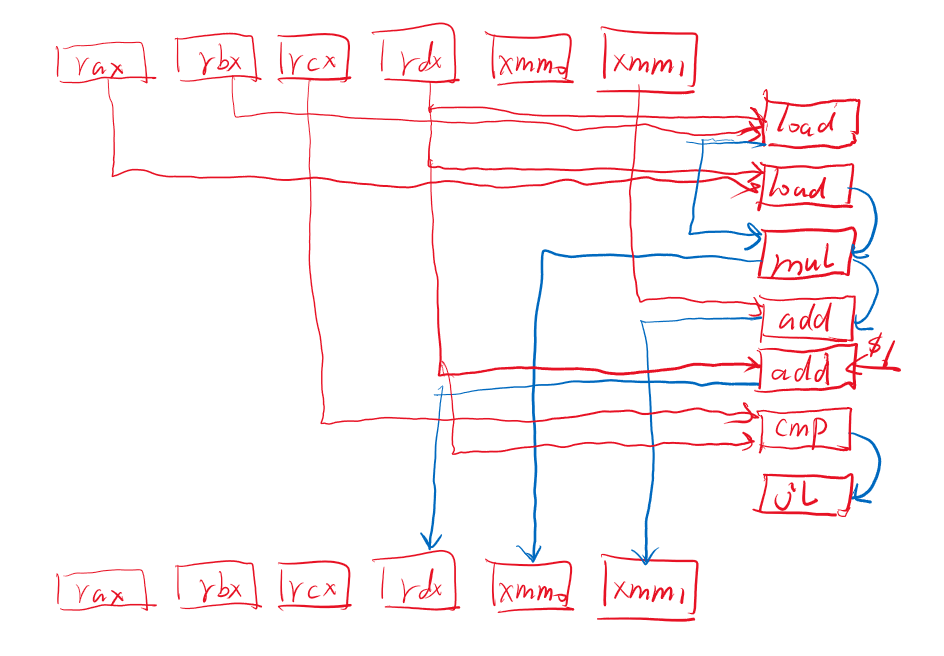 rax rbx rcx rdx xmm0 xmm1
load
load
mul
add
add $1
cmp
jl
rax rbx rcx rdx xmm0 xmm1